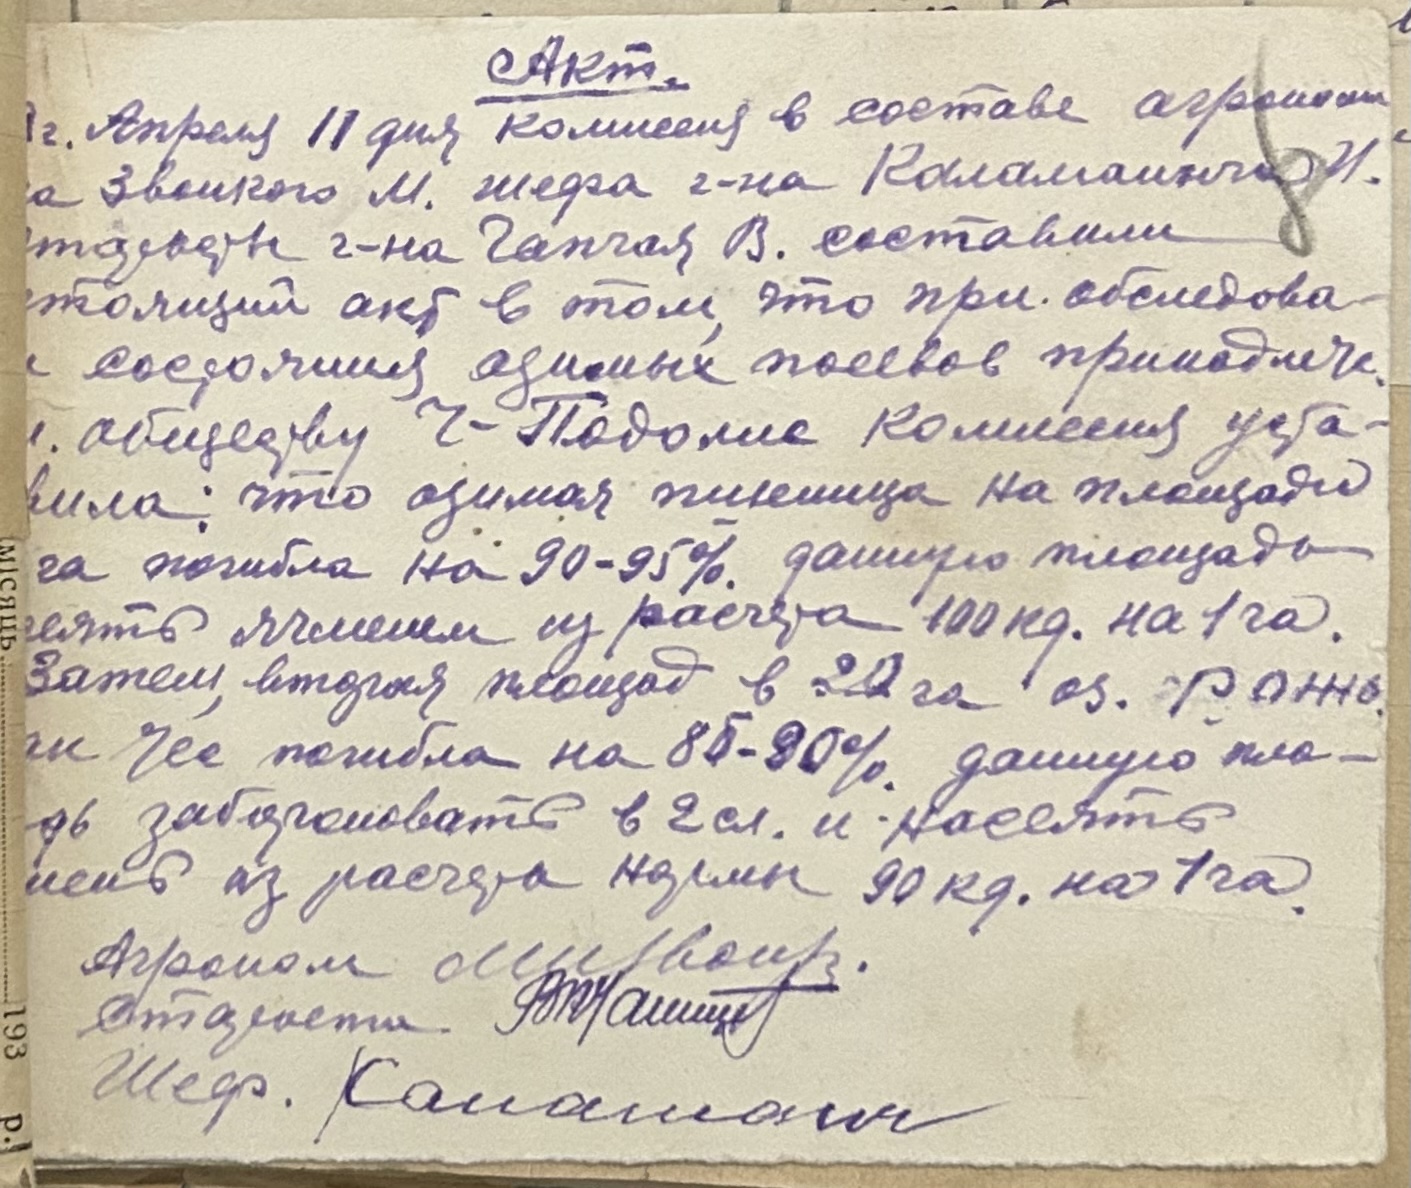 Акт.
г. Апреля 11 дня комиссия в составе агронома
Звонкого М. шефа г-на Каламанчо И.
г-на Чапчая В. составили
стоящий акт в том, что при обследова-
состояния озимых посевов принадлеж.
обществу Ч-Подолис комиссия уста-
вила: что озимая пшеница на площади
га погибла на 90-95%. данную площадь
сеять ячменем из расчета 100 кг. на 1 га.
Затем, вторая площад в 20 га оз. Рожь
погибла на 85-90%. данную пло-
дь заборановать в 2 сл. и насеять
мень из расчета нормы 90 кг. на 1 га.
Агроном
Староста
Шеф. Каламанч
місяць 193 р.